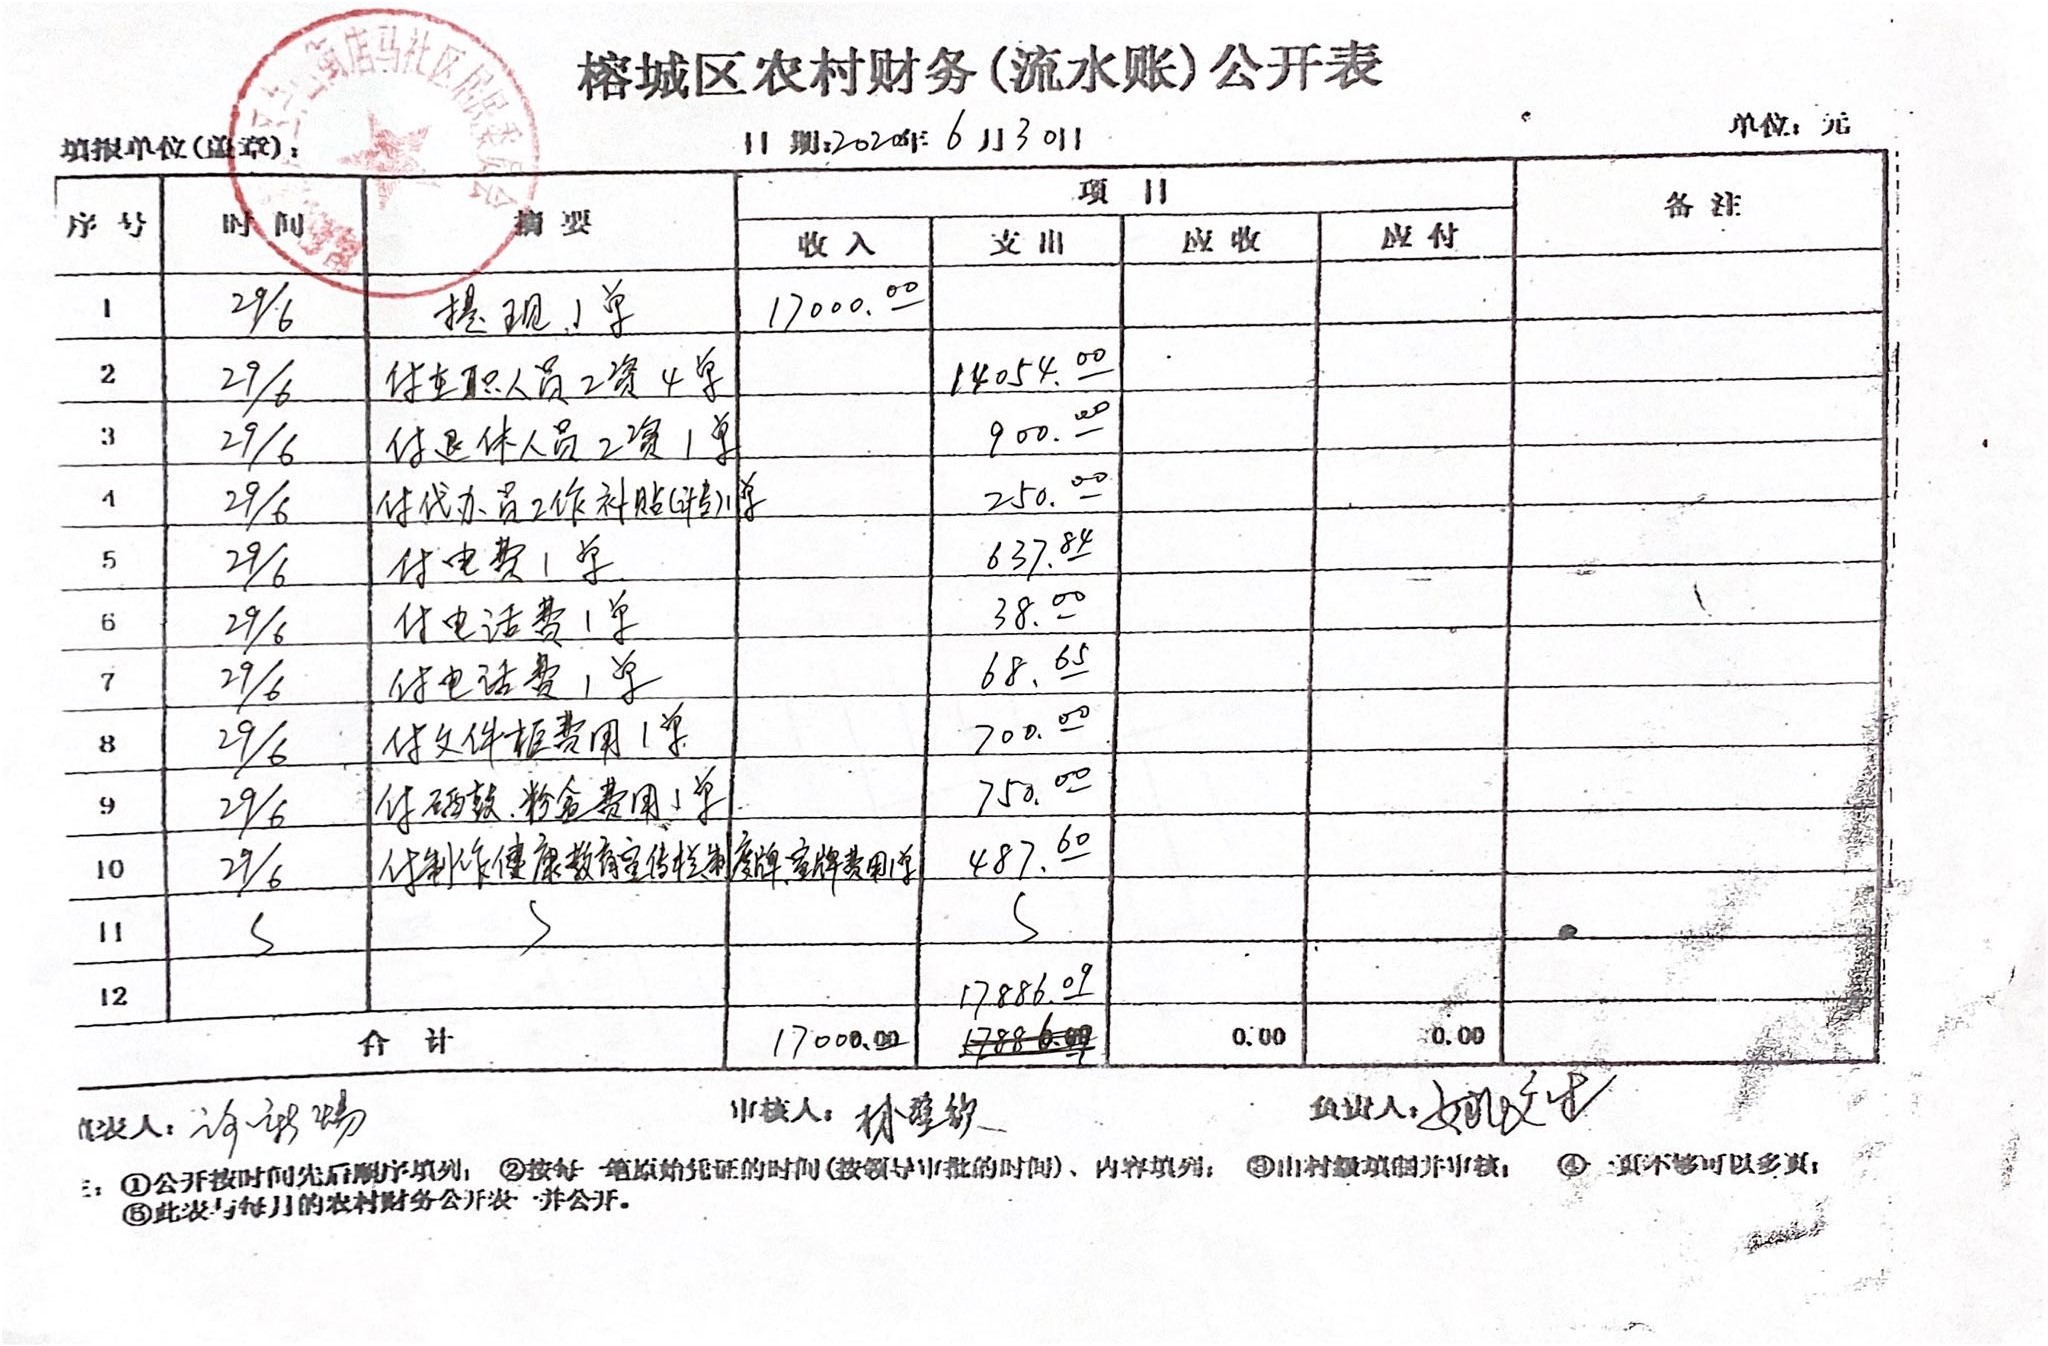 榕城区农村财务(流水账)公开表
填报单位(盖章): 日期:2020年6月30日 单位:元
店马社区居民委员会
序号 时间 摘要 项目 备注
收入 支出 应收 应付
1 29/6 提现1单 17000.00
2 29/6 付在职人员工资4单 14054.00
3 29/6 付退休人员工资1单 900.00
4 29/6 付代办员工作补贴(计生)1单 250.00
5 29/6 付电费1单 637.84
6 29/6 付电话费1单 38.00
7 29/6 付电话费1单 68.65
8 29/6 付文件柜费用1单 700.00
9 29/6 付硒鼓、粉盒费用1单 750.00
10 29/6 付制作健康教育宣传栏、制度牌、室牌费用1单 487.60
11
12 17886.09
合计 17000.00 17886.09 0.00 0.00
制表人: 审核人: 负责人:
注: ①公开按时间先后顺序填列; ②按每一笔原始凭证的时间(按领导审批的时间)、内容填列; ③由村级填制并审核; ④一页不够可以多页;
⑤此表与每月的农村财务公开表一并公开。